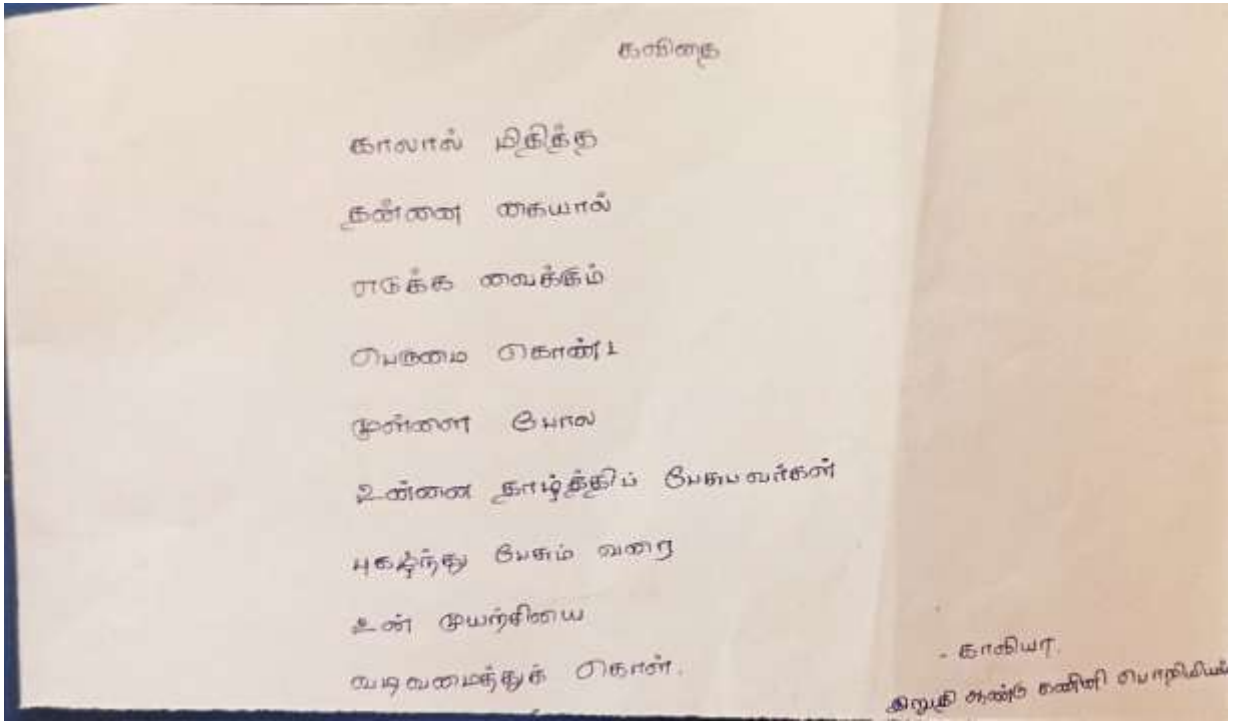 கவிதை
காலால் மிதித்த
தன்னை கையால்
எடுக்க வைக்கும்
பெருமை கொண்ட
முள்ளை போல
உன்னை தாழ்த்திப் பேசுபவர்கள்
புகழ்ந்து பேசும் வரை
உன் முயற்சியை
வடிவமைத்துக் கொள்.
- காவியா.
இறுதி ஆண்டு கணினி பொறியியல்